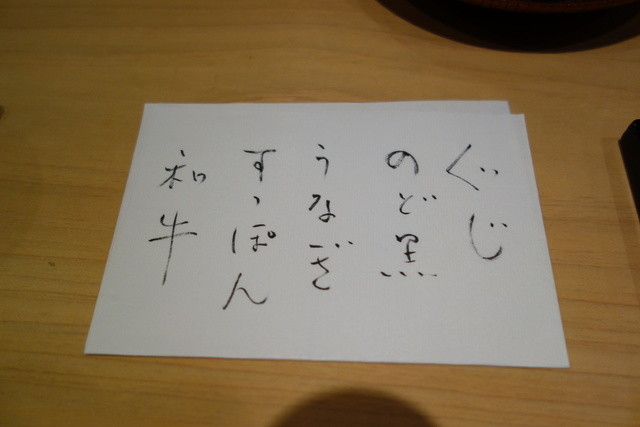 ぐじ
のど黒
うなぎ
すっぽん
和牛